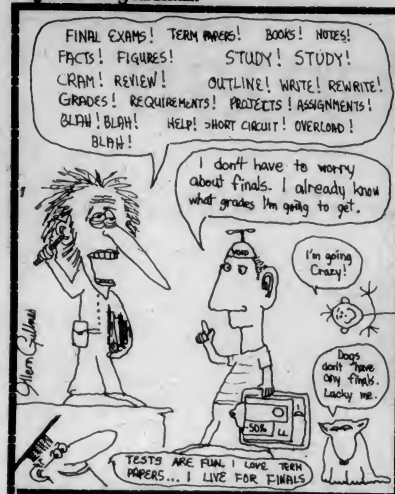 FINAL EXAMS! TERM PAPERS! BOOKS! NOTES!
FACTS! FIGURES! STUDY! STUDY!
CRAM! REVIEW! OUTLINE! WRITE! REWRITE!
GRADES! REQUIREMENTS! PROJECTS! ASSIGNMENTS!
BLAH! BLAH! HELP! SHORT CIRCUIT! OVERLOAD!
BLAH!
I don't have to worry
about finals. I already know
what grades I'm going to get.
VOID
I'm going
Crazy!
Dogs
don't have
any finals.
Lucky me.
50%
TESTS ARE FUN, I LOVE TERM
PAPERS... I LIVE FOR FINALS